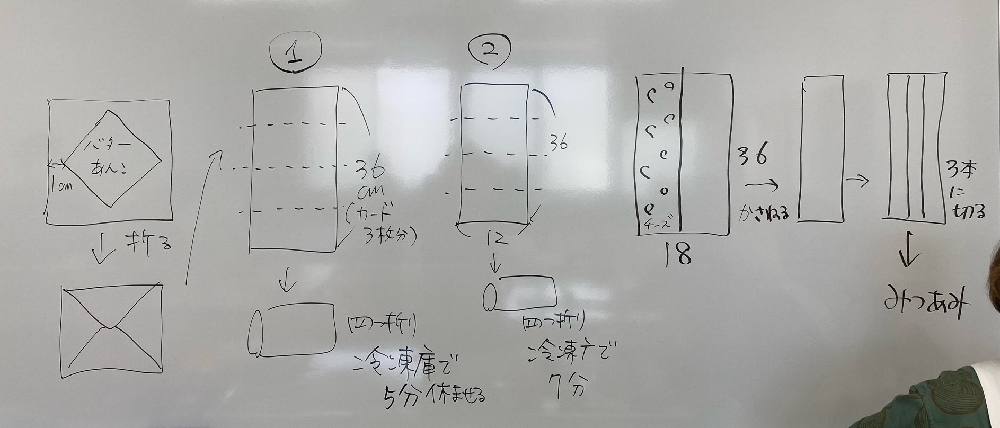 バター
あんこ
1cm
折る
①
36
cm
(カード
3枚分)
四つ折り
冷凍庫で
5分休ませる
②
36
12
四つ折り
冷凍庫で
7分
チーズ
18
36
かさねる
3本
に
切る
みつあみ